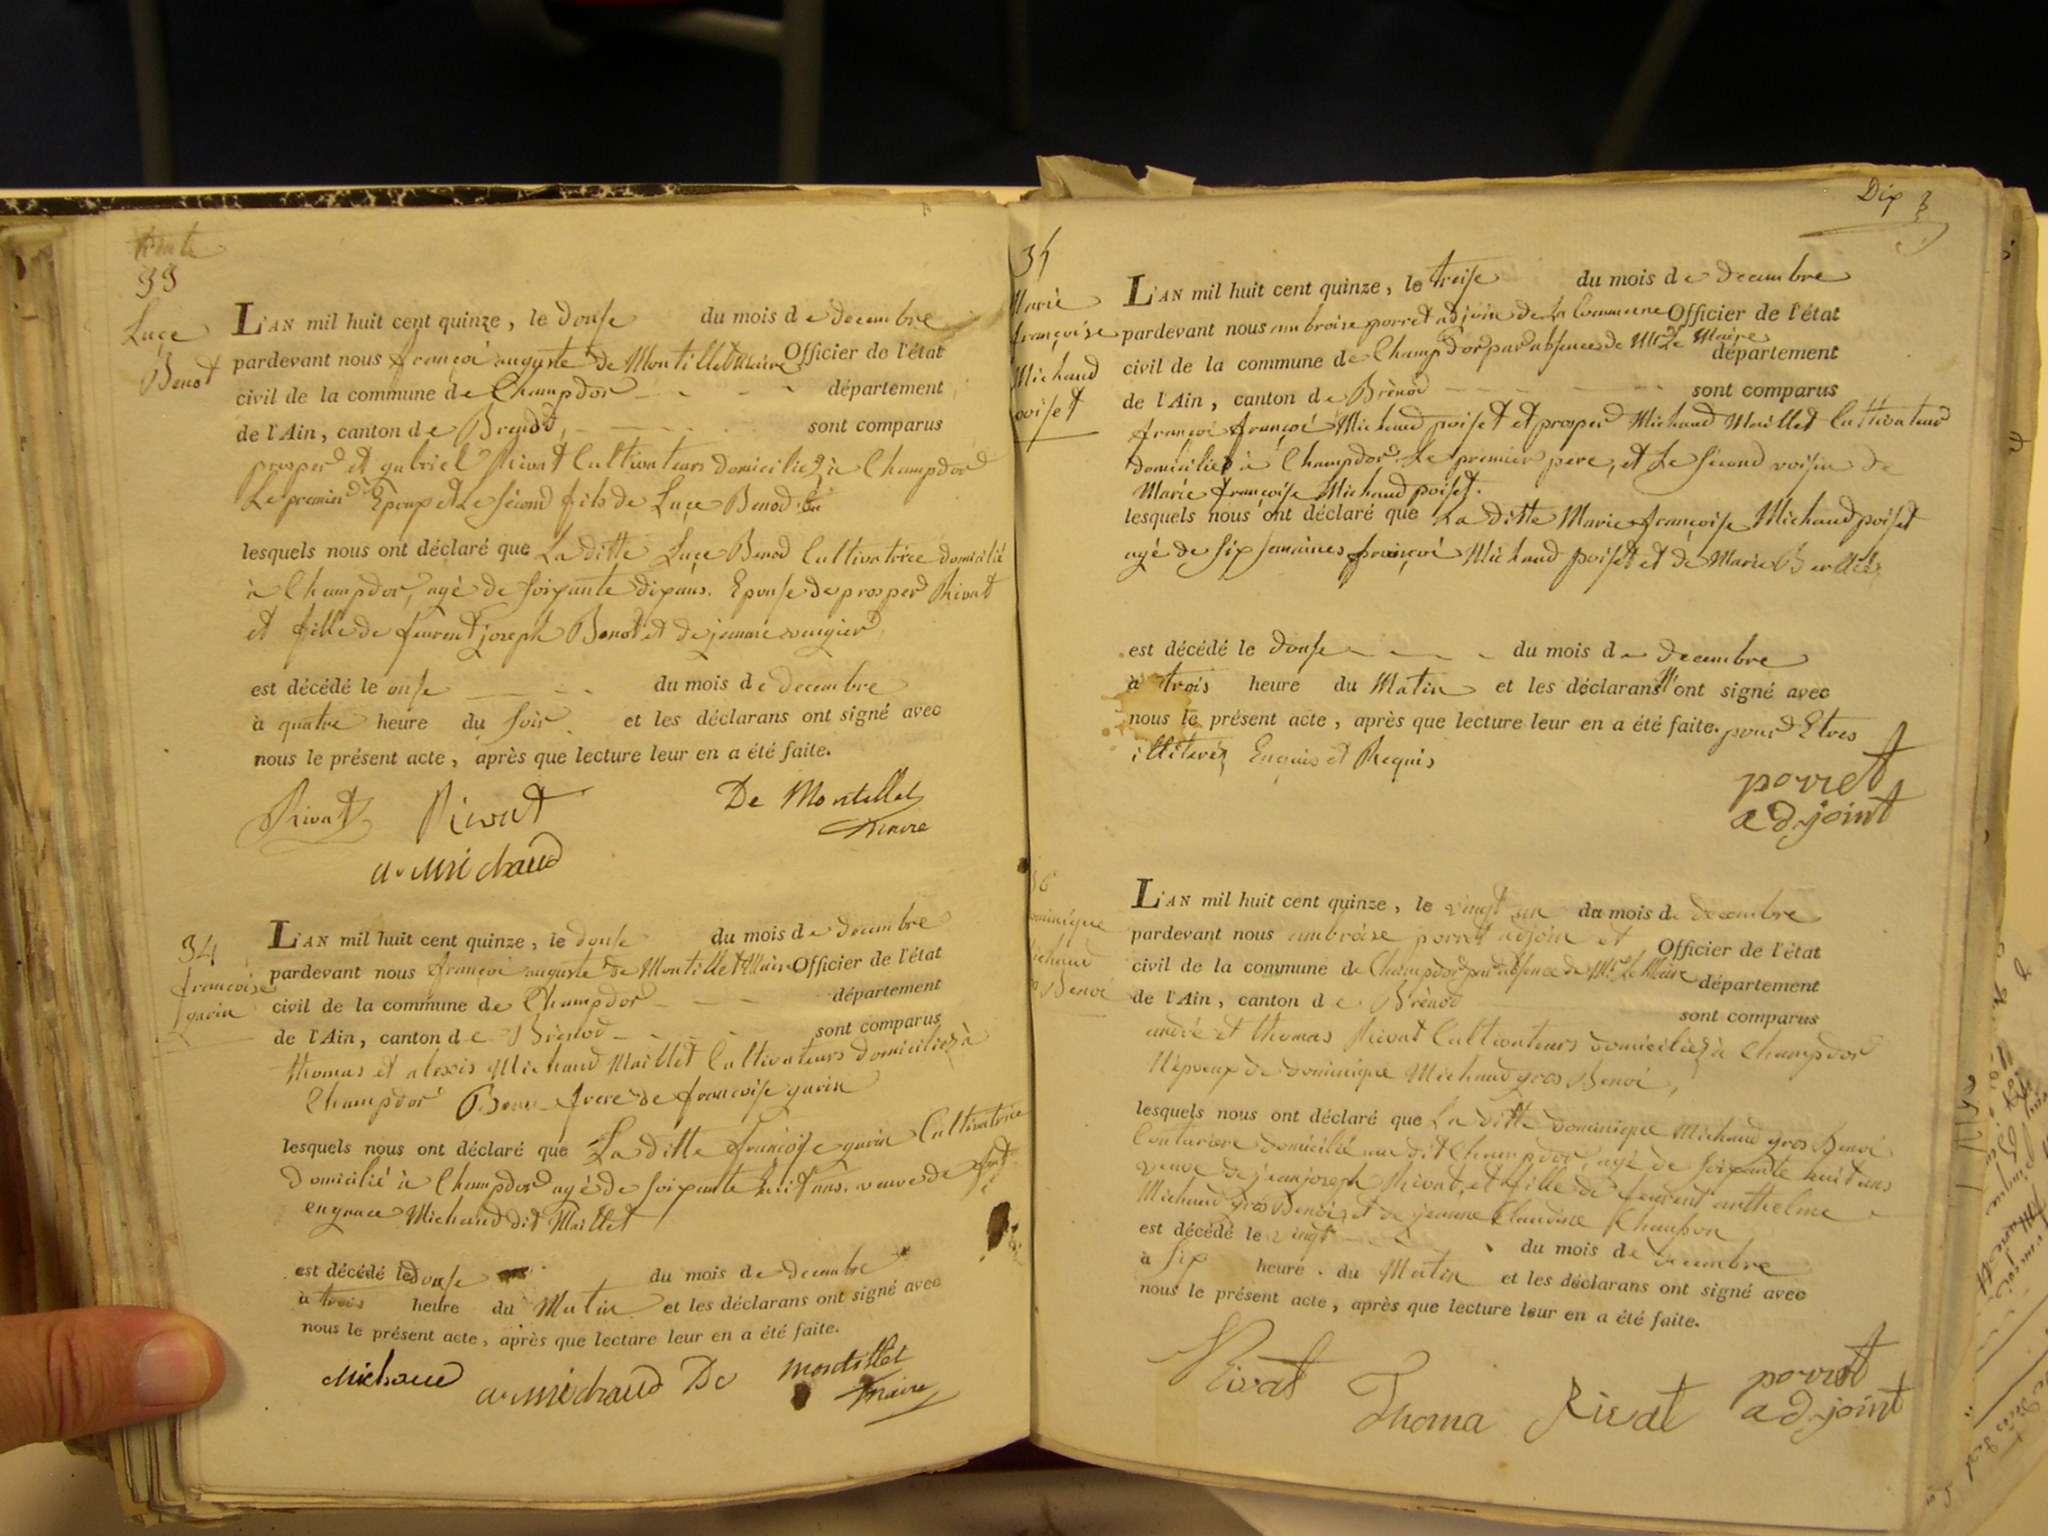 33
Luçe
Benod
L'AN mil huit cent quinze, le douse du mois de decembre
pardevant nous françoi auguste de Montillet Maire Officier de l'état
civil de la commune de Champdor département
de l'Ain, canton de Brenod sont comparus
prosper et gabriel Rivat Cultivateurs domiciliez à Champdor
Le premier Epoux et Le sécond fils de Luçe Benod
lesquels nous ont déclaré que La ditte Luçe Benod Cultivatrice domicilié
à Champdor, agé de soixante dix ans. Epouse de prosper Rivat
et fille de feurent joseph Benod et de jeanne
est décédé le onse du mois de decembre
à quatre heure du soir et les déclarans ont signé avec
nous le présent acte, après que lecture leur en a été faite.
Rivat Rivat De Montillet
maire
a. Michaud
34
francoise
gavin
L'AN mil huit cent quinze, le douse du mois de decembre
pardevant nous françoi auguste de Montillet Maire Officier de l'état
civil de la commune de Champdor département
de l'Ain, canton de Brénod sont comparus
thomas et alexis Michaud Maillet Cultivateurs domiciliez à
Champdor Beau frere de francoise gavin
lesquels nous ont déclaré que La ditte francoise gavin Cultivatrice
domicilié à Champdor agé de soixante huit ans. veuve de
engrace Michaud dit Maillet
est décédé le douse du mois de decembre
à trois heure du Matin et les déclarans ont signé avec
nous le présent acte, après que lecture leur en a été faite.
Michaud a. Michaud De Montillet
maire
Dix
35
Marie
françoise
Michaud
poiset
L'AN mil huit cent quinze, le treise du mois de decembre
pardevant nous ambroise porret adjoin de La Commune Officier de l'état
civil de la commune de Champdor par absence de Mr Le Maire département
de l'Ain, canton de Brénod sont comparus
françoi françoi Michaud poiset et prosper Michaud Maillet Cultivateur
domiciliez à Champdor. Le premier pere, et Le sécond voisin de
Marie françoise Michaud poiset.
lesquels nous ont déclaré que La ditte Marie françoise Michaud poiset
agé de six semaines françoi Michaud poiset et de Marie
est décédé le douse du mois de decembre
à trois heure du Matin et les déclarans n'ont signé avec
nous le présent acte, après que lecture leur en a été faite. pour Etres
illiterez Enquis et Requis
porret
adjoint
36
Dominique
Michaud
Benoi
L'AN mil huit cent quinze, le vingt un du mois de decembre
pardevant nous ambroise porret adjoin et Officier de l'état
civil de la commune de Champdor par absence de Mr Le Maire département
de l'Ain, canton de Brénod sont comparus
andré et thomas Rivat Cultivateurs domiciliez à Champdor
Népveux de dominique Michaud gros Benoi,
lesquels nous ont déclaré que La ditte dominique Michaud gros Benoi
Couturiere domicilié au dit Champdor, agé de soixante huit ans
veuve de jean joseph Rivat, et fille de feurent anthelme
Michaud gros Benoi, et de jeanne Claudine Chanson
est décédé le vingt du mois de decembre
à six heure du Matin et les déclarans ont signé avec
nous le présent acte, après que lecture leur en a été faite.
Rivat Thoma Rivat porret
adjoint